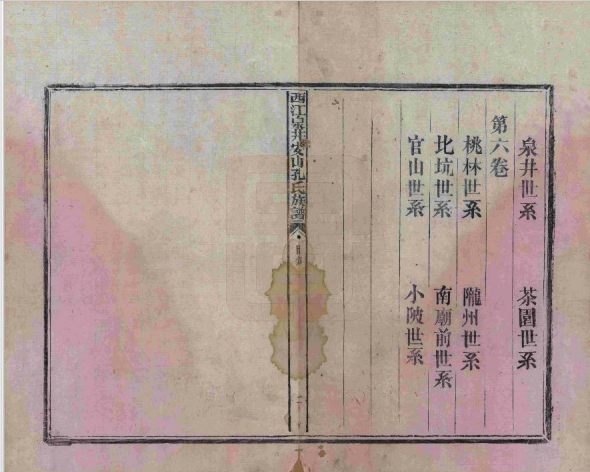 泉井世系 茶園世系
第六卷
桃林世系 隴州世系
北坑世系 南廟前世系
官山世系 小陂世系
西江泉井安山孔氏族譜
目录
二